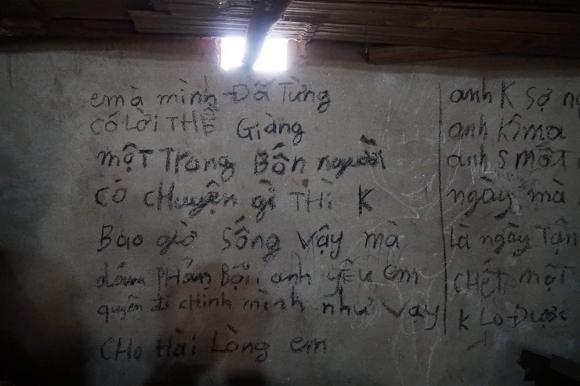 em à mình Đã Từng
có Lời THỀ Giàng
một Trong Bốn người
có cHuyện gì THÌ K
Bao giờ Sống Vậy mà
PHản Bội. anh yêu em
quyên đi chính mình như vậy
CHo Hài Lòng em
anh K Sợ
anh
anh
ngày mà
là ngày Tận
CHếT một
K Lo Được